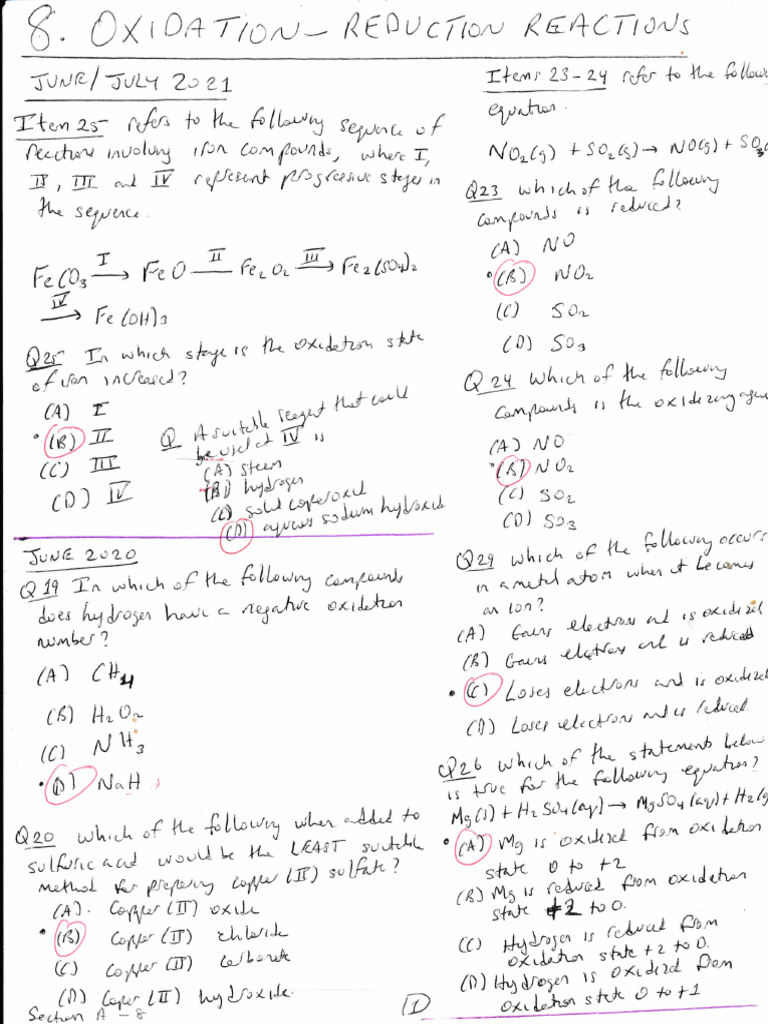 8. OXIDATION-REDUCTION REACTIONS
JUNE/JULY 2021
Item 25 refers to the following sequence of
reactions involving iron compounds, where I,
II, III and IV represent progressive stages in
the sequence.
I II III
FeCO3 → FeO — Fe2O2 → Fe2(SO4)2
IV
→ Fe(OH)3
Q25 In which stage is the oxidation state
of iron increased?
(A) I
(B) II
(C) III
(D) IV
Q A suitable reagent that could
be used at IV is
(A) steam
(B) hydrogen
(C) solid
(D) aqueous sodium hydroxid
JUNE 2020
Q19 In which of the following compounds
does hydrogen have a negative oxidation
number?
(A) CH4
(B) H2O2
(C) NH3
(D) NaH
Q20 Which of the following when added to
sulfuric acid would be the LEAST suitable
method for preparing copper (II) sulfate?
(A). Copper (II) oxide
(B) Copper (II) chloride
(C) Copper (II) carbonate
(D) Copper (II) hydroxide.
Section A - 8
Items 23-24 refer to the follow
equation.
NO2(g) + SO2(g) → NO(g) + SO3
Q23 Which of the following
compounds is reduced?
(A) NO
(B) NO2
(C) SO2
(D) SO3
Q24 Which of the following
compounds is the oxidizing age
(A) NO
(B) NO2
(C) SO2
(D) SO3
Q29 Which of the following occurs
in a metal atom when it becomes
an ion?
(A) Gains electrons and is oxidized
(B) Gains electrons and is reduced
(C) Loses electrons and is oxidized
(D) Loses electrons and is reduced.
Q26 Which of the statements below
is true for the following equation?
Mg(s) + H2SO4(aq) → MgSO4(aq) + H2(g
(A) Mg is oxidized from oxidation
state 0 to +2
(B) Mg is reduced from oxidation
state +2 to 0.
(C) Hydrogen is reduced from
oxidation state +2 to 0.
(D) Hydrogen is oxidized from
oxidation state 0 to +1
1